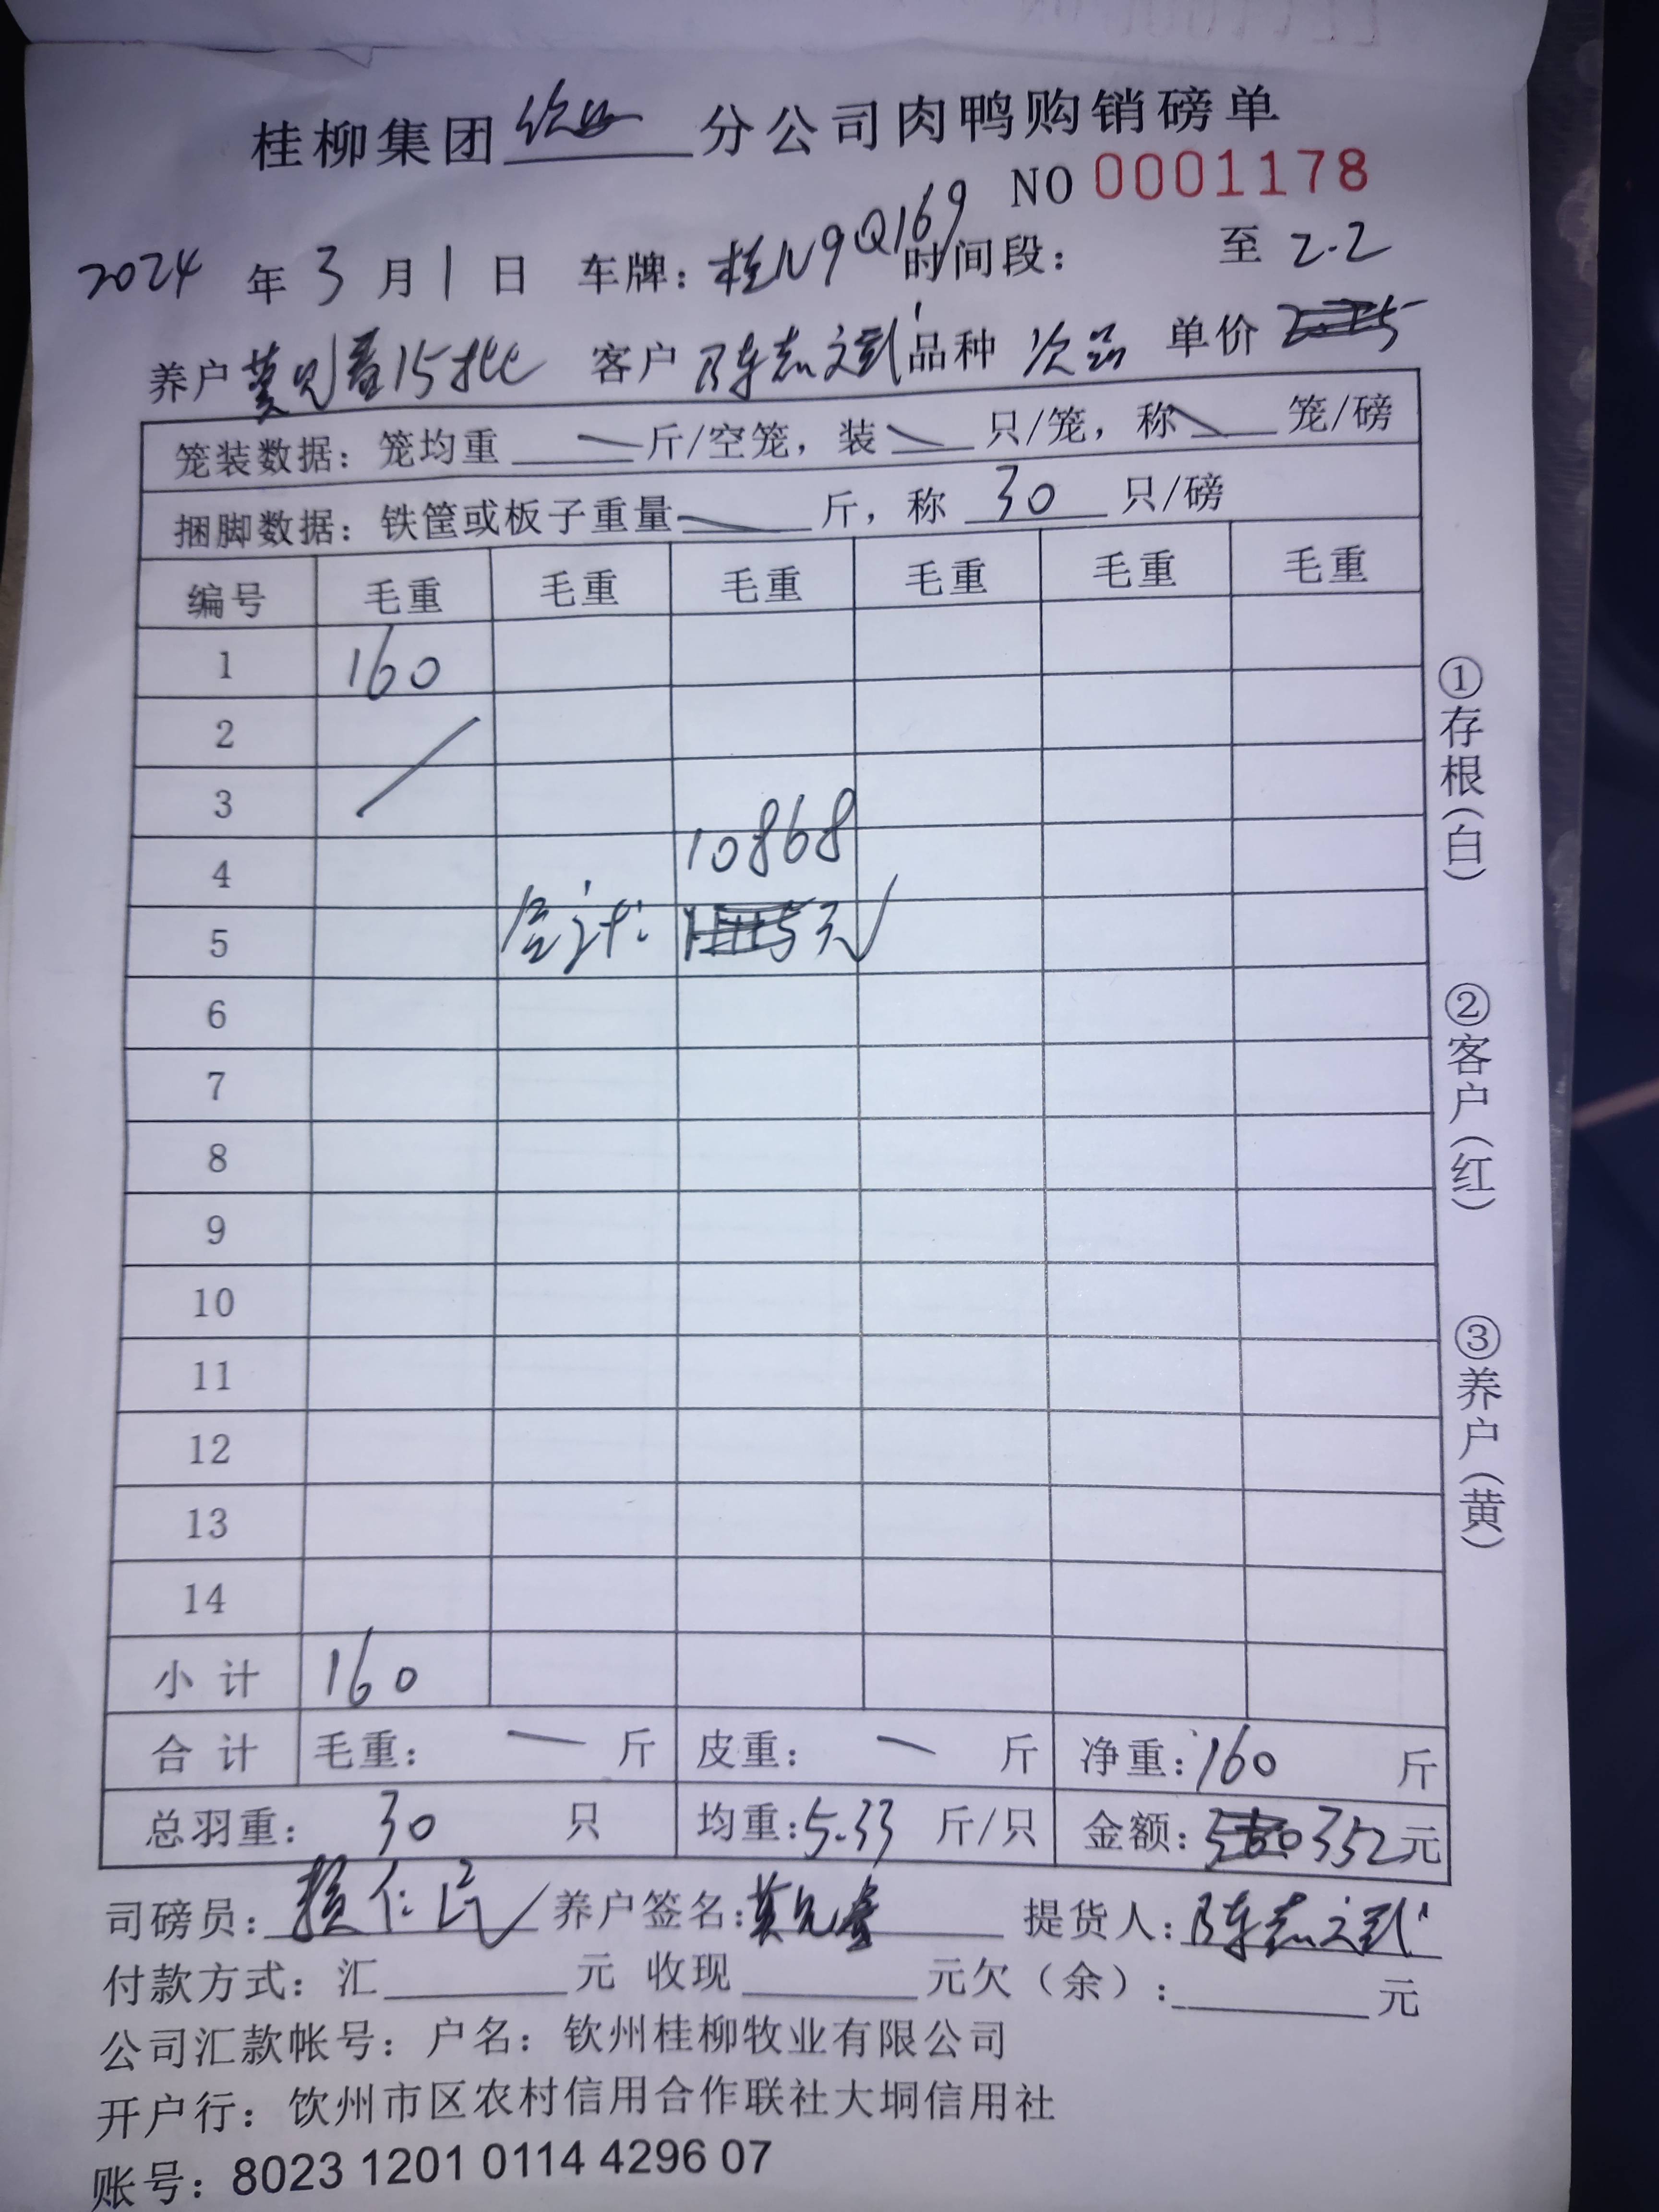 桂柳集团 钦州 分公司肉鸭购销磅单
NO 0001178
2024 年 3 月 1 日 车牌: 桂N9Q169 时间段: 至 2.2
养户 15批 客户 陈志文 品种 次品 单价
笼装数据: 笼均重 斤/空笼, 装 只/笼, 称 笼/磅
捆脚数据: 铁筐或板子重量 斤, 称 30 只/磅
编号 毛重 毛重 毛重 毛重 毛重 毛重
1 160
2
3
4 10868
5 合计: 元
6
7
8
9
10
11
12
13
14
小计 160
合计 毛重: 斤 皮重: 斤 净重: 160 斤
总羽重: 30 只 均重: 5.33 斤/只 金额: 352 元
司磅员: 仁 养户签名: 提货人: 陈志文
付款方式: 汇 元 收现 元欠（余）: 元
公司汇款帐号: 户名: 钦州桂柳牧业有限公司
开户行: 钦州市区农村信用合作联社大垌信用社
账号: 8023 1201 0114 4296 07
①存根(白)
②客户(红)
③养户(黄)